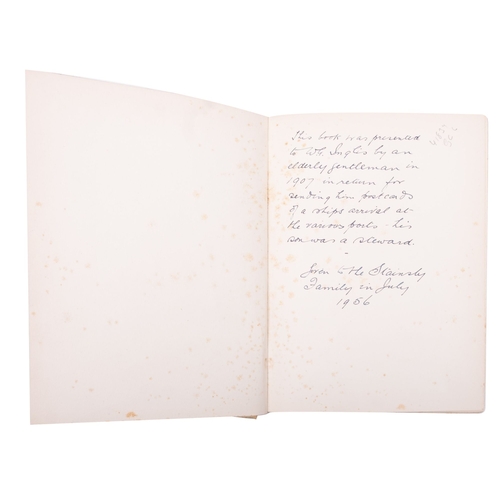 This book was presented
to Wh. Inglis by an
elderly gentleman in
1907 in return for
sending him postcards
of a ships arrival at
the various ports - his
son was a steward.
-
Given to the Stainsby
Family in July
1956